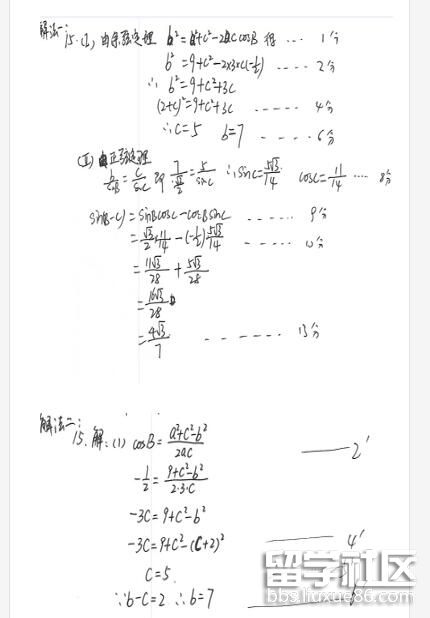 解法一:
15.(Ⅰ) 由余弦定理 b²=a²+c²-2accosB 得 ... 1分
b²=9+c²-2×3×c(-½) .... 2分
∴ b²=9+c²+3c
(2+c)²=9+c²+3c ..... 4分
∴c=5 b=7 .... 6分
(Ⅱ) 由正弦定理
b/sinB = c/sinC 即 7/(√3/2) = 5/sinC ∴sinC=5√3/14 cosC=11/14 .... 8分
sin(B-C)=sinBcosC-cosBsinC ...... 9分
=√3/2×11/14-(-½)5√3/14 ..... 10分
=11√3/28+5√3/28
=16√3/28
=4√3/7 ...... 13分
解法二:
15.解:(1) cosB=(a²+c²-b²)/2ac —— 2'
-½=(9+c²-b²)/2·3·c
-3c=9+c²-b²
-3c=9+c²-(c+2)² —— 4'
c=5.
∵b-c=2 ∴b=7
留学社区
bbs.liuxue86.com